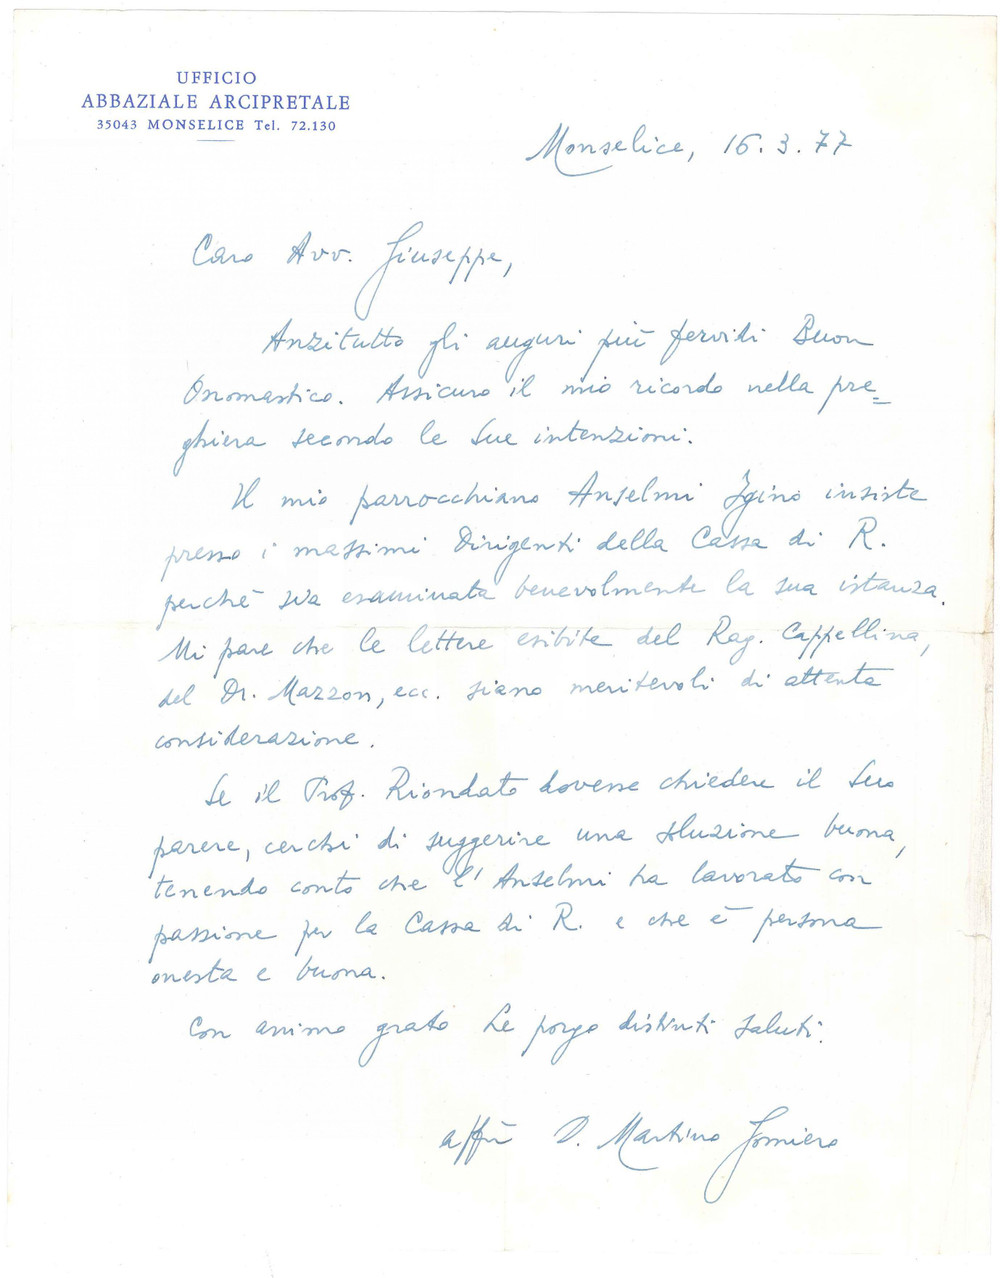 UFFICIO
ABBAZIALE ARCIPRETALE
35043 MONSELICE Tel. 72.130
Monselice, 16.3.77
Caro Avv. Giuseppe,
Anzitutto gli auguri più fervidi Buon
Onomastico. Assicuro il mio ricordo nella pre=
ghiera secondo le Sue intenzioni.
Il mio parrocchiano Anselmi Igino insiste
presso i massimi Dirigenti della Cassa di R.
perchè sia esaminata benevolmente la sua istanza.
Mi pare che le lettere esibite del Rag. Cappellina,
del Dr. Mazzon, ecc. siano meritevoli di attenta
considerazione.
Se il Prof. Riondato dovesse chiedere il Suo
parere, cerchi di suggerire una soluzione buona,
tenendo conto che l'Anselmi ha lavorato con
passione per la Cassa di R. e che è persona
onesta e buona.
Con animo grato Le porgo distinti saluti.
D. Martino Gomiero